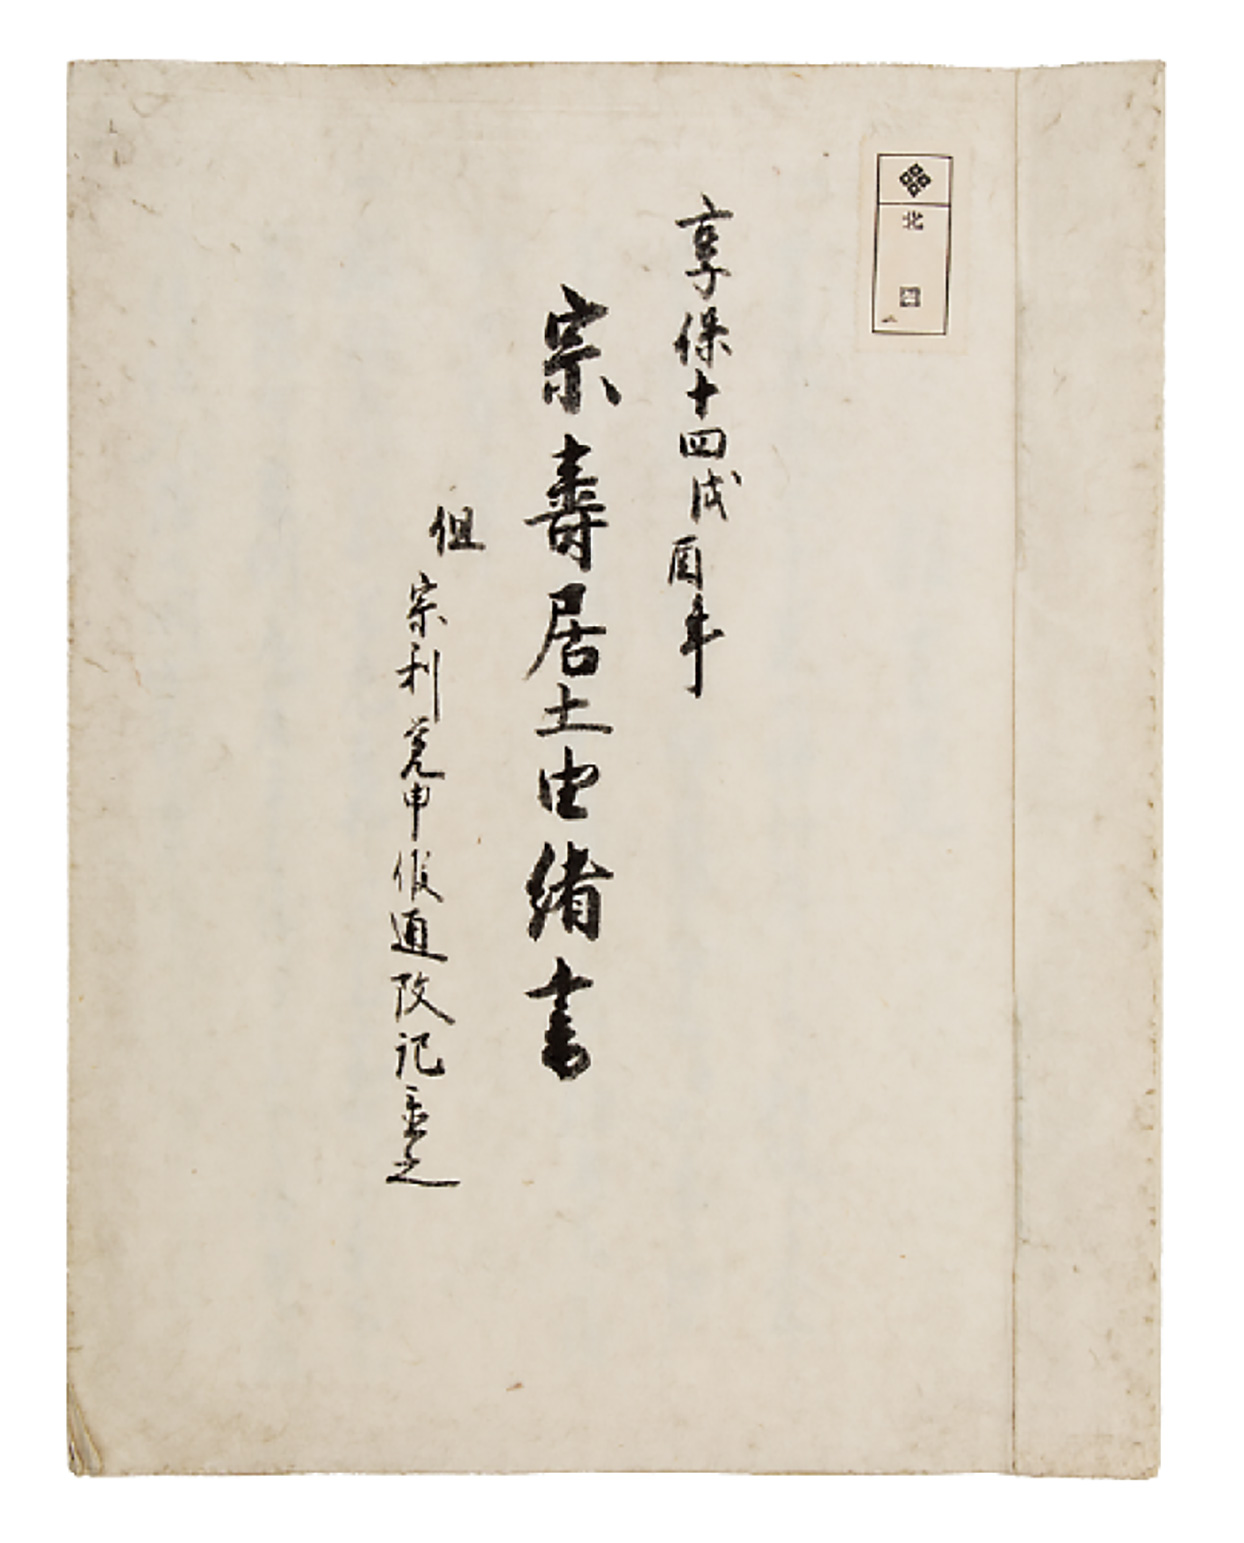 北
享保十四戊酉年
宗壽居士由緒書
但
宗利覚申候通改記置之